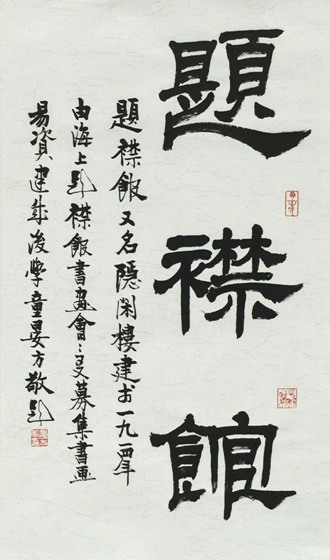 題襟館
題襟館又名隱閑樓建于一九一四年
由海上題襟館書畫會〻友募集書画
易資建成後學童晏方敬題